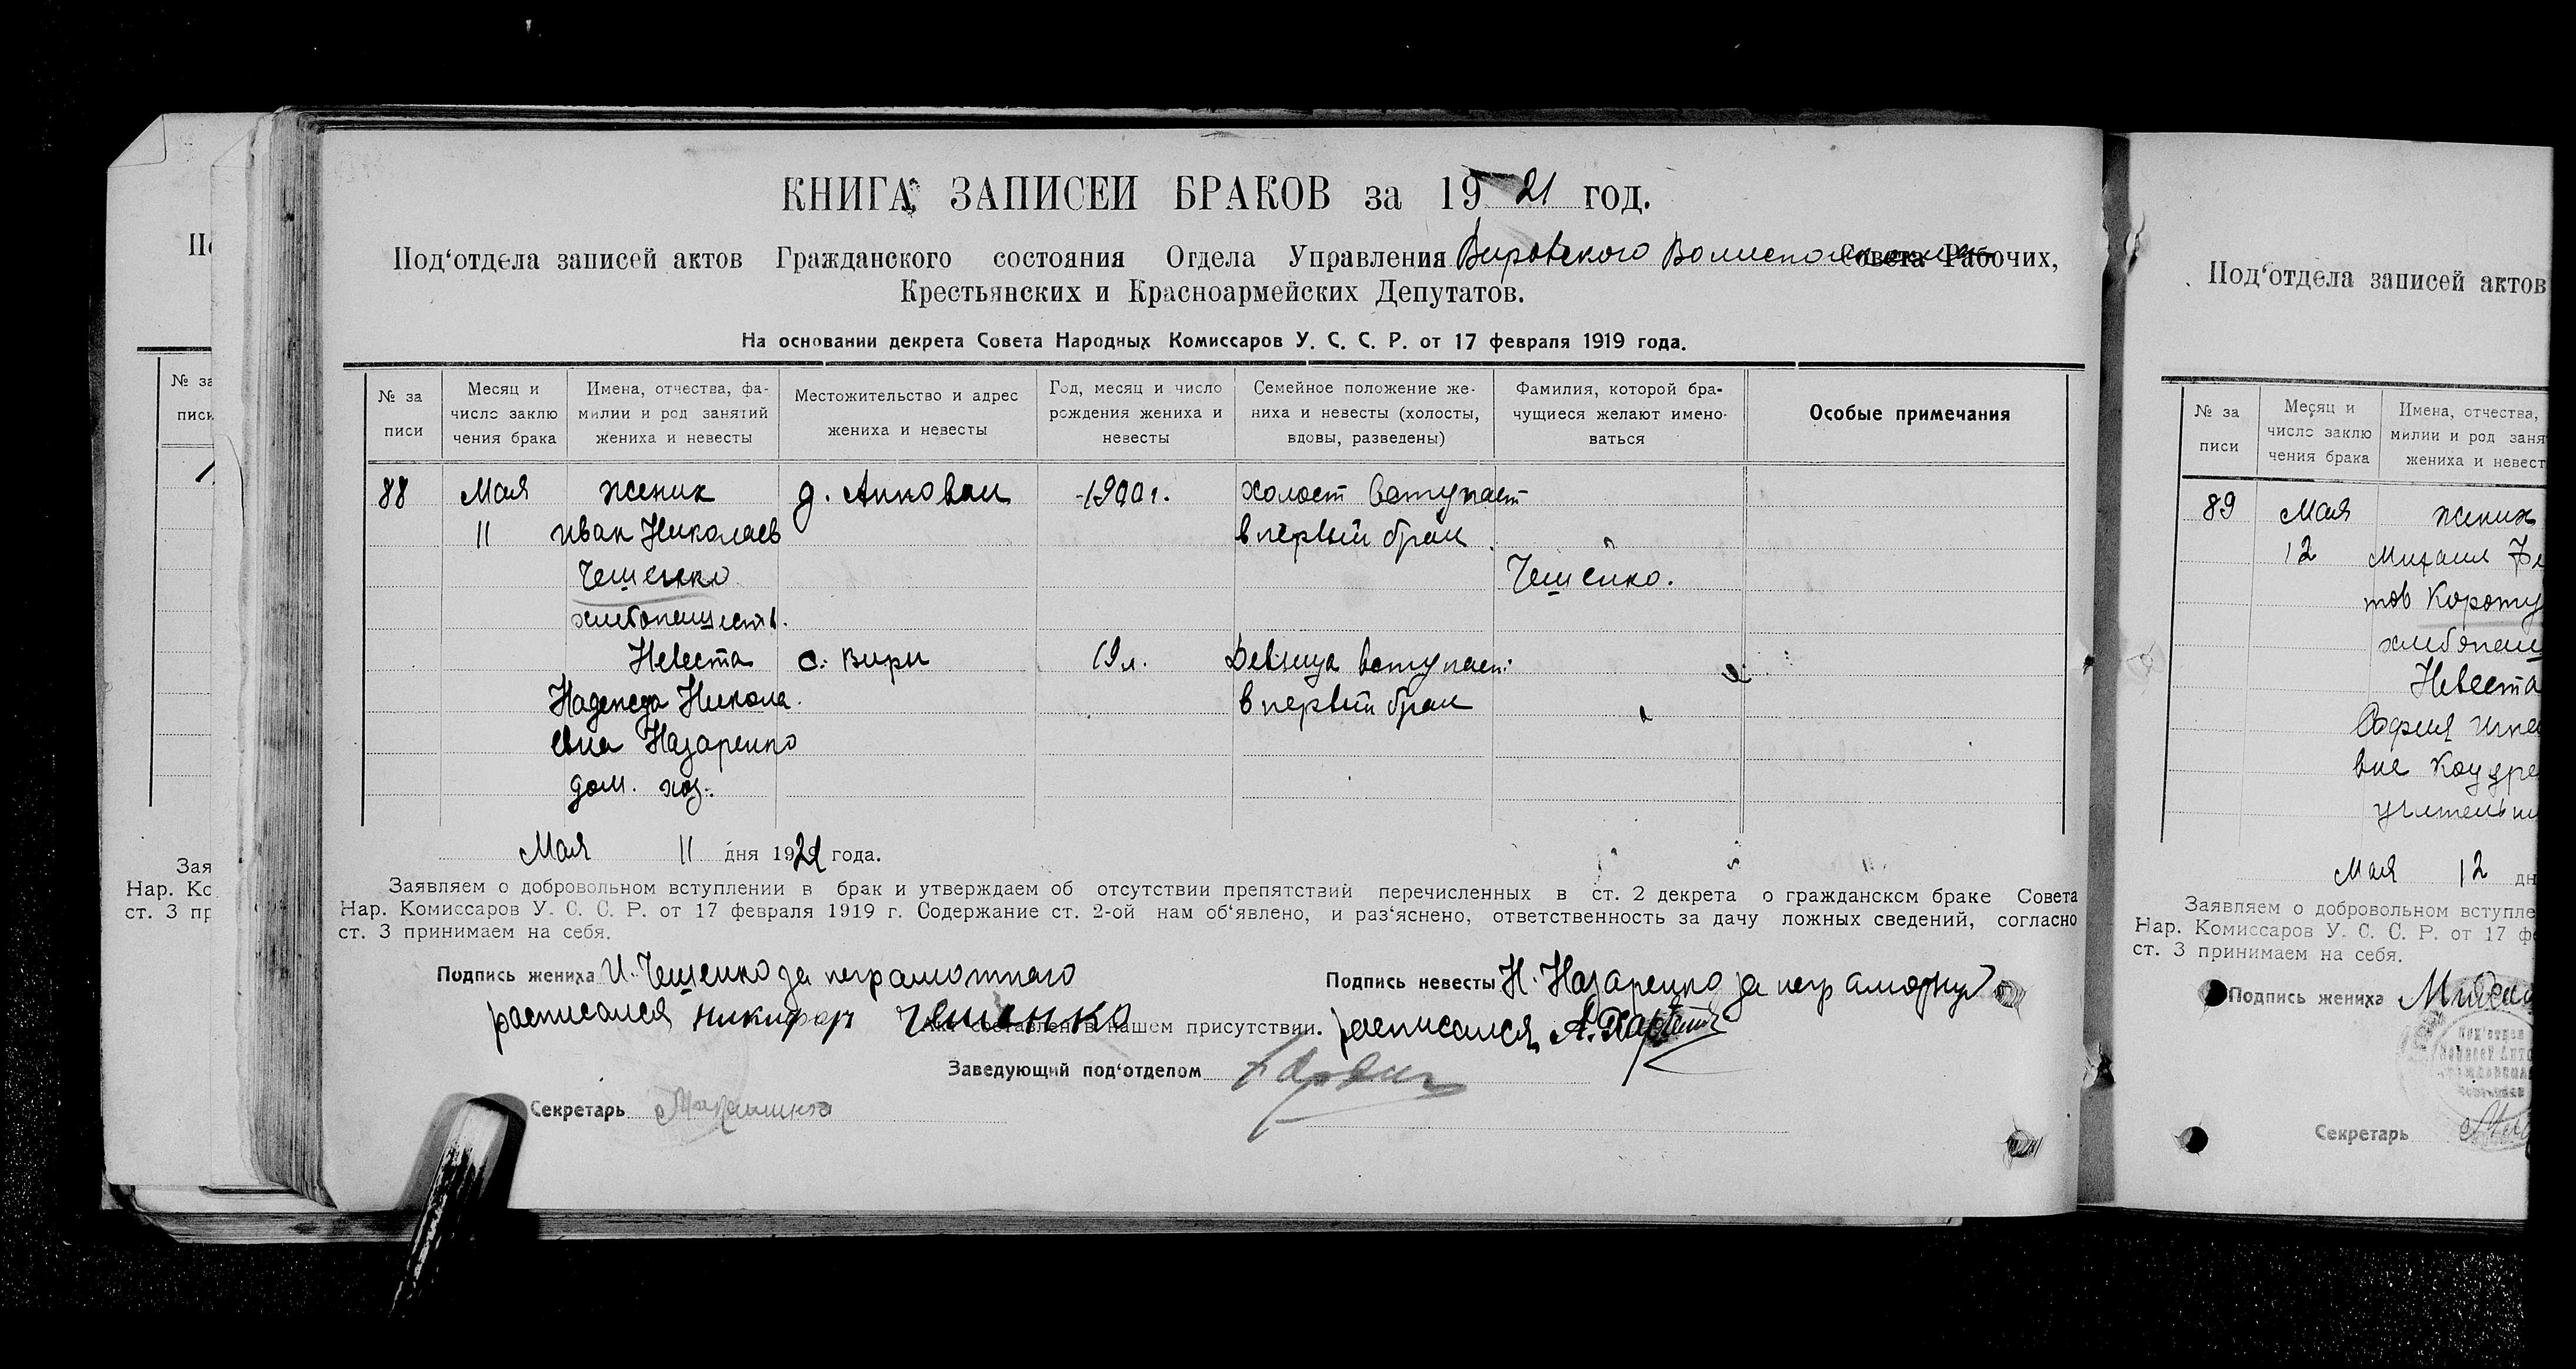 КНИГА ЗАПИСЕЙ БРАКОВ за 1921 год.
Под‘отдела записей актов Гражданского состояния Отдела Управления Вировского Волисполкома Совета Рабочих,
Крестьянских и Красноармейских Депутатов.
На основании декрета Совета Народных Комиссаров У. С. С. Р. от 17 февраля 1919 года.
№ за
писи
Месяц и
число заклю
чения брака
Имена, отчества, фа-
милии и род занятий
жениха и невесты
Местожительство и адрес
жениха и невесты
Год, месяц и число
рождения жениха и
невесты
Семейное положение же-
ниха и невесты (холосты,
вдовы, разведены)
Фамилия, которой бра-
чущиеся желают имено-
ваться
Особые примечания
88
Мая
11
жених
Иван Николаев
Чешенко
хлебопашеств.
1900 г.
холост вступает
в первый брак
Чешенко.
Невеста
Надежда Никола
евна Назаренко
дом. хоз.
с. Вири
19 л.
Девица вступает
в первый брак
Мая 11 дня 1921 года.
Заявляем о добровольном вступлении в брак и утверждаем об отсутствии препятствий перечисленных в ст. 2 декрета о гражданском браке Совета
Нар. Комиссаров У. С. С. Р. от 17 февраля 1919 г. Содержание ст. 2-ой нам об‘явлено, и раз‘яснено, ответственность за дачу ложных сведений, согласно
ст. 3 принимаем на себя.
Подпись жениха И. Чешенко за неграмотного
расписался Никифор Чешенко
Подпись невесты Н. Назаренко за неграмотную
расписался А.
Акт составлен в нашем присутствии.
Заведующий под‘отделом
Секретарь
Под‘отдела записей актов
№ за
писи
Месяц и
число заклю
чения брака
Имена, отчества,
милии и род заня
жениха и невест
89
Мая
12
жених
Михаил
тов Короту
хлебопаш
Невеста
София Игна
вна
учительни
Мая 12 дн
Заявляем о добровольном вступле
Нар. Комиссаров У. С. С. Р. от 17 ф
ст. 3 принимаем на себя.
Подпись жениха
Секретарь
№ за
писи
Зая
Нар. Ко
ст. 3 пр